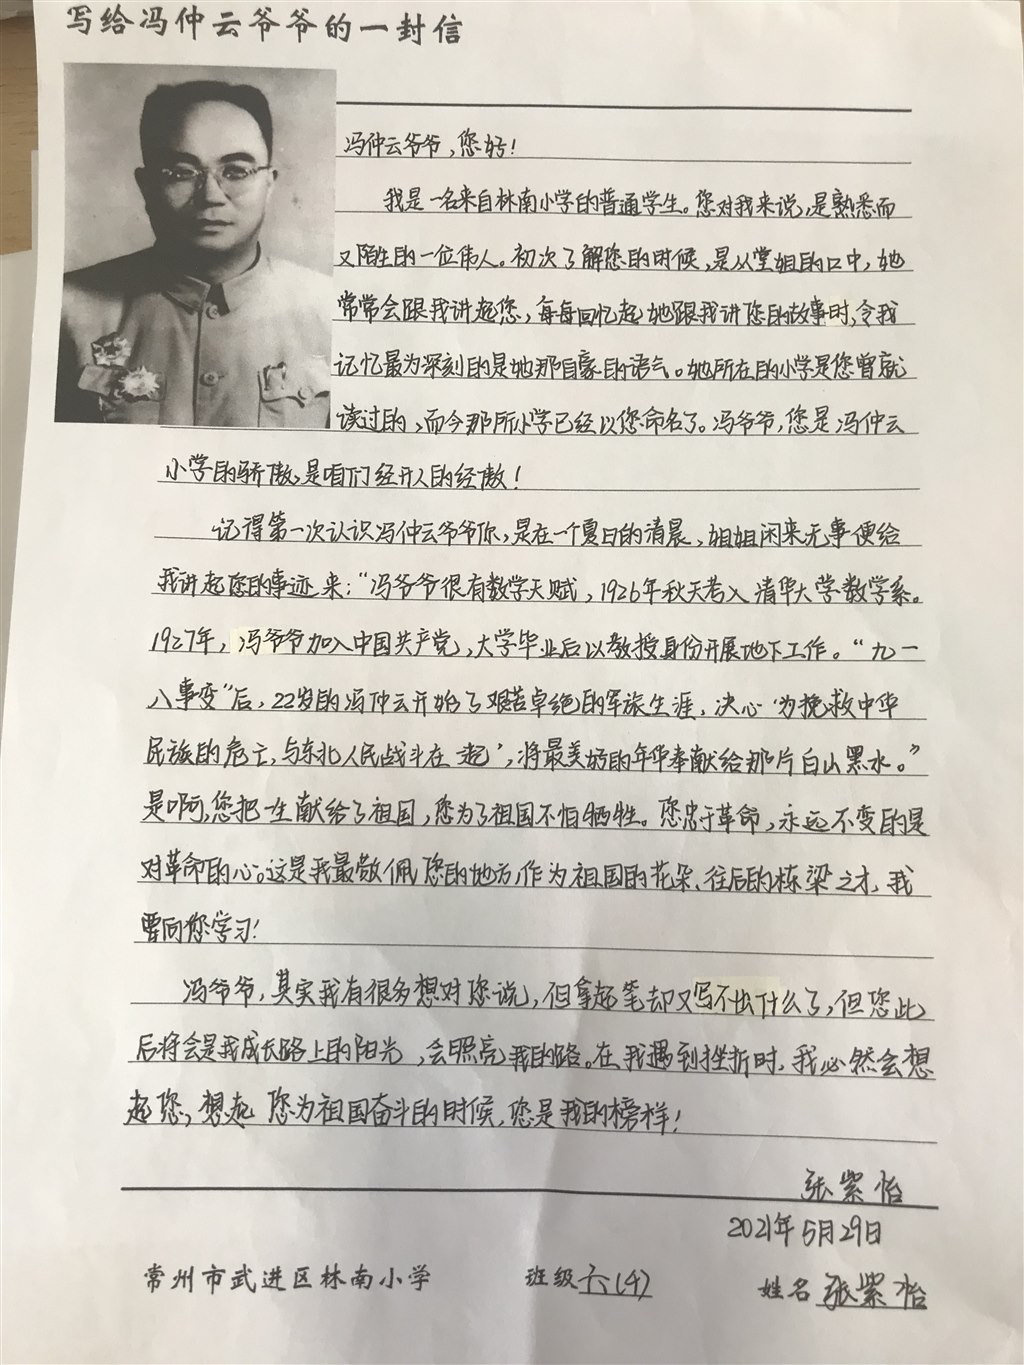 写给冯仲云爷爷的一封信
冯仲云爷爷，您好！
我是一名来自林南小学的普通学生。您对我来说，是熟悉而
又陌生的一位伟人。初次了解您的时候，是从堂姐的口中，她
常常会跟我讲起您，每每回忆起她跟我讲您的故事时，令我
记忆最为深刻的是她那自豪的语气。她所在的小学是您曾就
读过的，而今那所小学已经以您命名了。冯爷爷，您是冯仲云
小学的骄傲，是咱们经开人的经傲！
记得第一次认识冯仲云爷爷你，是在一个夏日的清晨，姐姐闲来无事便给
我讲起您的事迹来：“冯爷爷很有数学天赋，1926年秋天考入清华大学数学系。
1927年，冯爷爷加入中国共产党，大学毕业后以教授身份开展地下工作。“九一
八事变”后，22岁的冯仲云开始了艰苦卓绝的军旅生涯，决心‘为挽救中华
民族的危亡，与东北人民战斗在一起’，将最美好的年华奉献给那片白山黑水。”
是啊，您把一生献给了祖国，您为了祖国不怕牺牲。您忠于革命，永远不变的是
对革命的心。这是我最敬佩您的地方，作为祖国的花朵、往后的栋梁之才，我
要向您学习！
冯爷爷，其实我有很多想对您说，但拿起笔却又写不出什么了，但您此
后将会是我成长路上的阳光，会照亮我的路。在我遇到挫折时，我必然会想
起您，想起您为祖国奋斗的时候，您是我的榜样！
张紫怡
2021年5月29日
常州市武进区林南小学 班级六(4) 姓名张紫怡